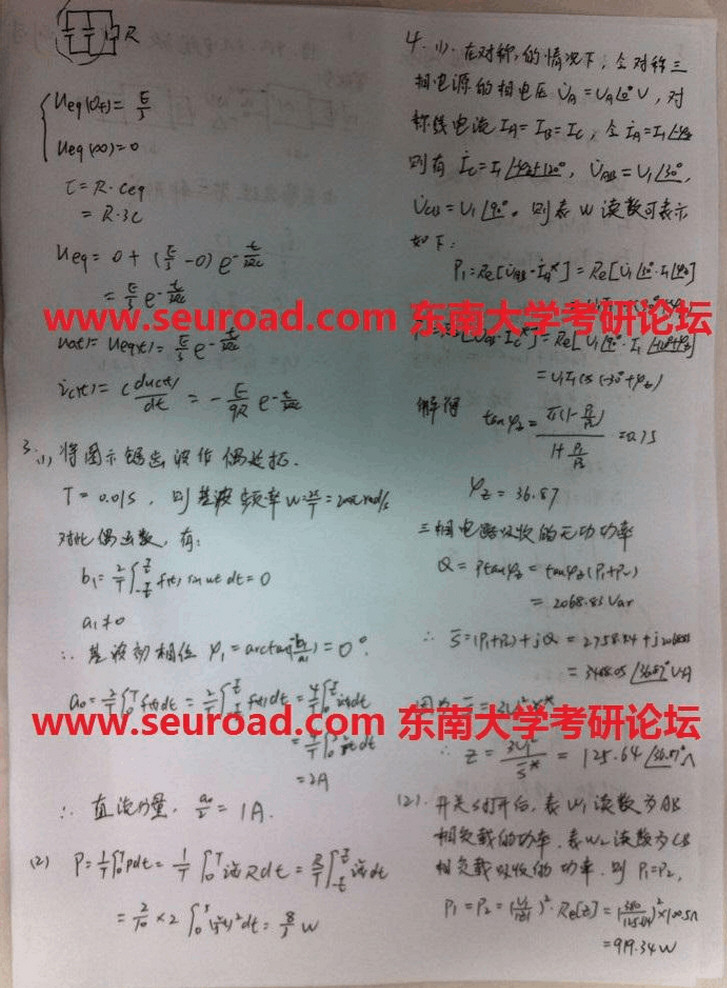 R
Ueq(0+) = E/3
Ueq(∞) = 0
τ = R·Ceq
= R·3C
Ueq = 0 + (E/3 - 0) e^{-t/3RC}
= E/3 e^{-t/3RC}
www.seuroad.com 东南大学考研论坛
u0(t) = Ueq(t) = E/3 e^{-t/3RC}
ic(t) = C duc(t)/dt = - E/9R e^{-t/3RC}
3. (1) 将图示锯齿波作偶延拓.
T = 0.01s, 则基波频率 ω = 2π/T = 200π rad/s
对此偶函数, 有:
b1 = 2/T ∫ f(t) sin ωt dt = 0
a1 ≠ 0
∴ 基波初相位 φ1 = arctan(-b1/a1) = 0°.
a0 = 2/T ∫ f(t)dt = 2/T ∫ f(t)dt = 4/T ∫ dt
www.seuroad.com 东南大学考研论坛
= 2A
∴ 直流分量, a0/2 = 1A.
(2) P = 1/T ∫ p dt = 1/T ∫ R dt = R/T ∫ dt
= 8/3 W
4. (1). 在对称的情况下, 令对称三
相电源的相电压 U̇A = UA∠0° V, 对
称线电流 IA = IB = IC, 令 İA = I1∠-φz
则有 İC = I1∠-φz+120°, U̇AB = U1∠30°,
U̇CB = U1∠90°. 则表 W 读数可表示
如下:
P1 = Re[U̇AB·İA*] = Re[U1∠30°·I1∠φz]
= U1I1cos(-30°+φz)
解得 tanφz = √3(1-P1/P2) / 1+P1/P2 = 0.75
φz = 36.87
三相电路吸收的无功功率
Q = Ptanφz = tanφz(P1+P2)
= 2068.83 Var
∴ S̄ = (P1+P2)+jQ
∠36.87° VA
∴ Z = 3U²/S̄* = 125.64∠36.87°Ω
(2). 开关S打开后, 表W1读数为AB
相负载的功率, 表W2读数为CB
相负载吸收的功率. 则 P1=P2,
P1 = P2 = (U1/|Z|)²·Re[Z] = (380/125.64)²×100.5Ω
= 919.34W